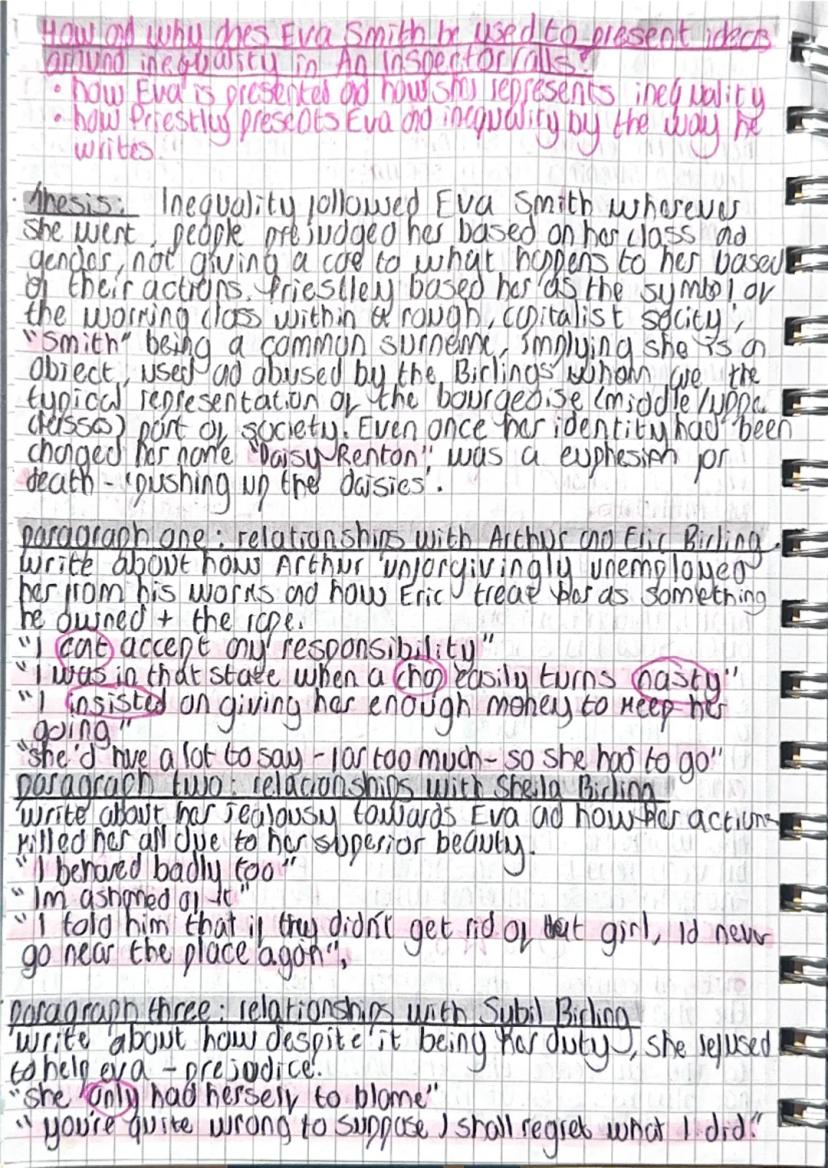 How ad why does Eva Smith be used to present ideas
around inequality in An Inspector calls?
• how Eva is presented ad how shes represents inequality
• how Priestly presents Eva ad inequality by the way he
writes.
thesis: Inequality followed Eva Smith wherever
she went, people prejudged her based on her class ad
gender, not giving a care to what happens to her based
of their actions. Priestley based her as the symbol of
the working class within a rough, capitalist socity,
"Smith" being a common surname, implying she is an
object, used ad abused by the Birlings whom are the
typical representation of the bourgeoise (middle/upper
classes) part of society. Even once her identity had been
changed her name "Daisy Renton" was a euphesim for
death - 'pushing up the daisies'.
paragraph one: relationships with Arthur and Eric Birling
write about how Arthur unforgivingly unemployed
her from his works ad how Eric treat her as something
he owned + the rape.
"I cant accept any responsibility"
"I was in that state when a chap easily turns nasty"
"I insisted on giving her enough money to keep her
going"
"she'd hve a lot to say - far too much - so she had to go"
paragraph two: relationships with Sheila Birling
write about her jealousy towards Eva ad how her actions
killed her all due to her superior beauty.
"I behaved badly too"
"Im ashamed of it"
"I told him that if they didn't get rid of that girl, Id never
go near the place again",
paragraph three: relationships with Sybil Birling
write about how despite it being her duty, she refused
to help eva - prejudice.
"she only had herself to blame"
"you're quite wrong to suppose I shall regret what I did."